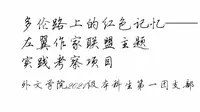 多伦路上的红色记忆——
左翼作家联盟主题
实践考察项目
外文学院2021级本科生第一团支部